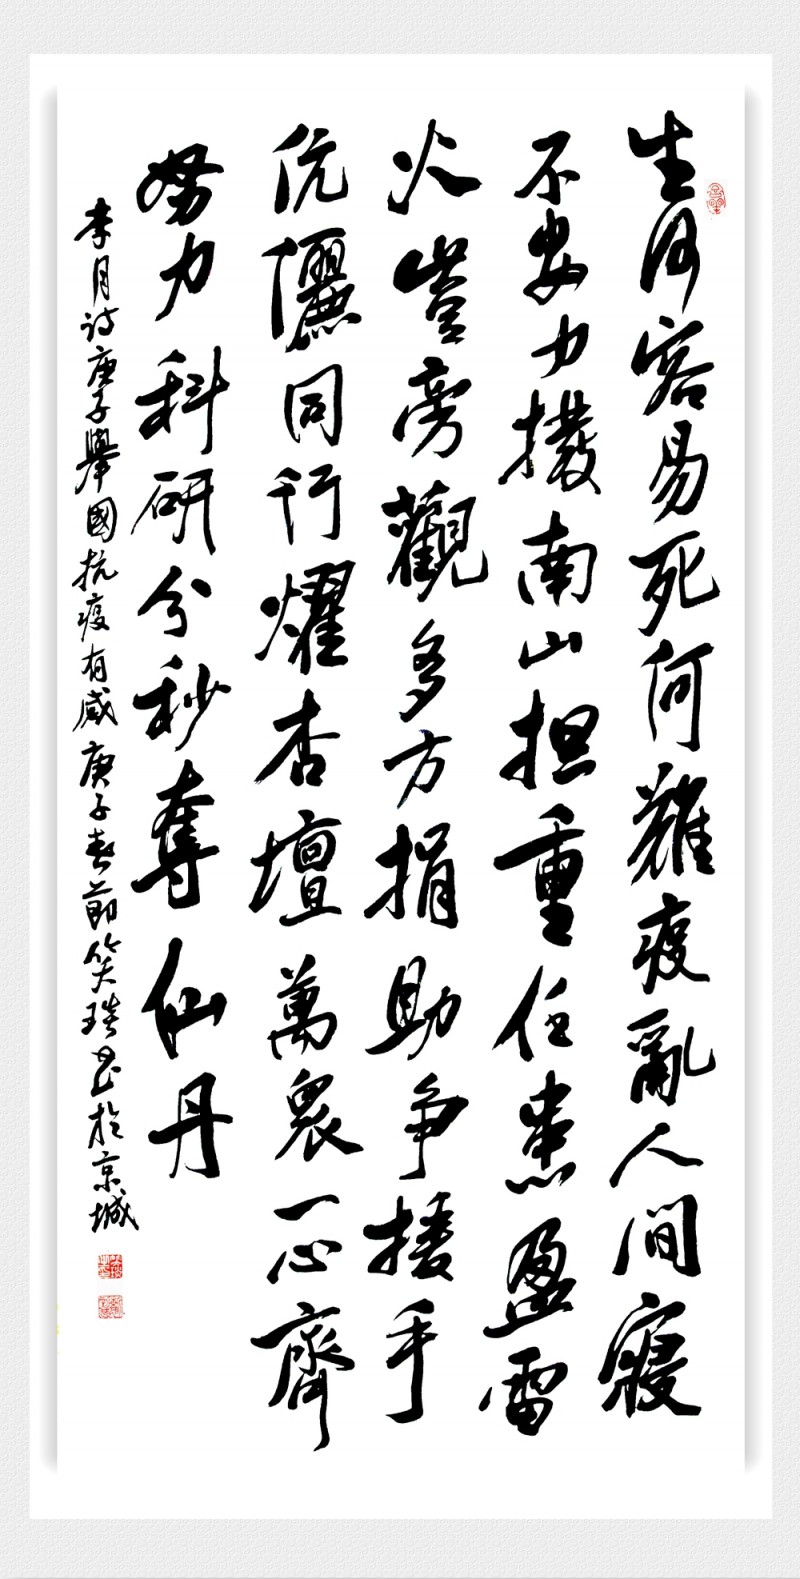 生何容易死何難疫亂人間寢
不安力撥南山担重任患盈雷
火豈旁觀多方捐助争援手
伉儷同行耀杏壇萬眾一心齊
努力科研分秒奪仙丹
李月诗庚子舉國抗疫有感庚子春節笑书於京城